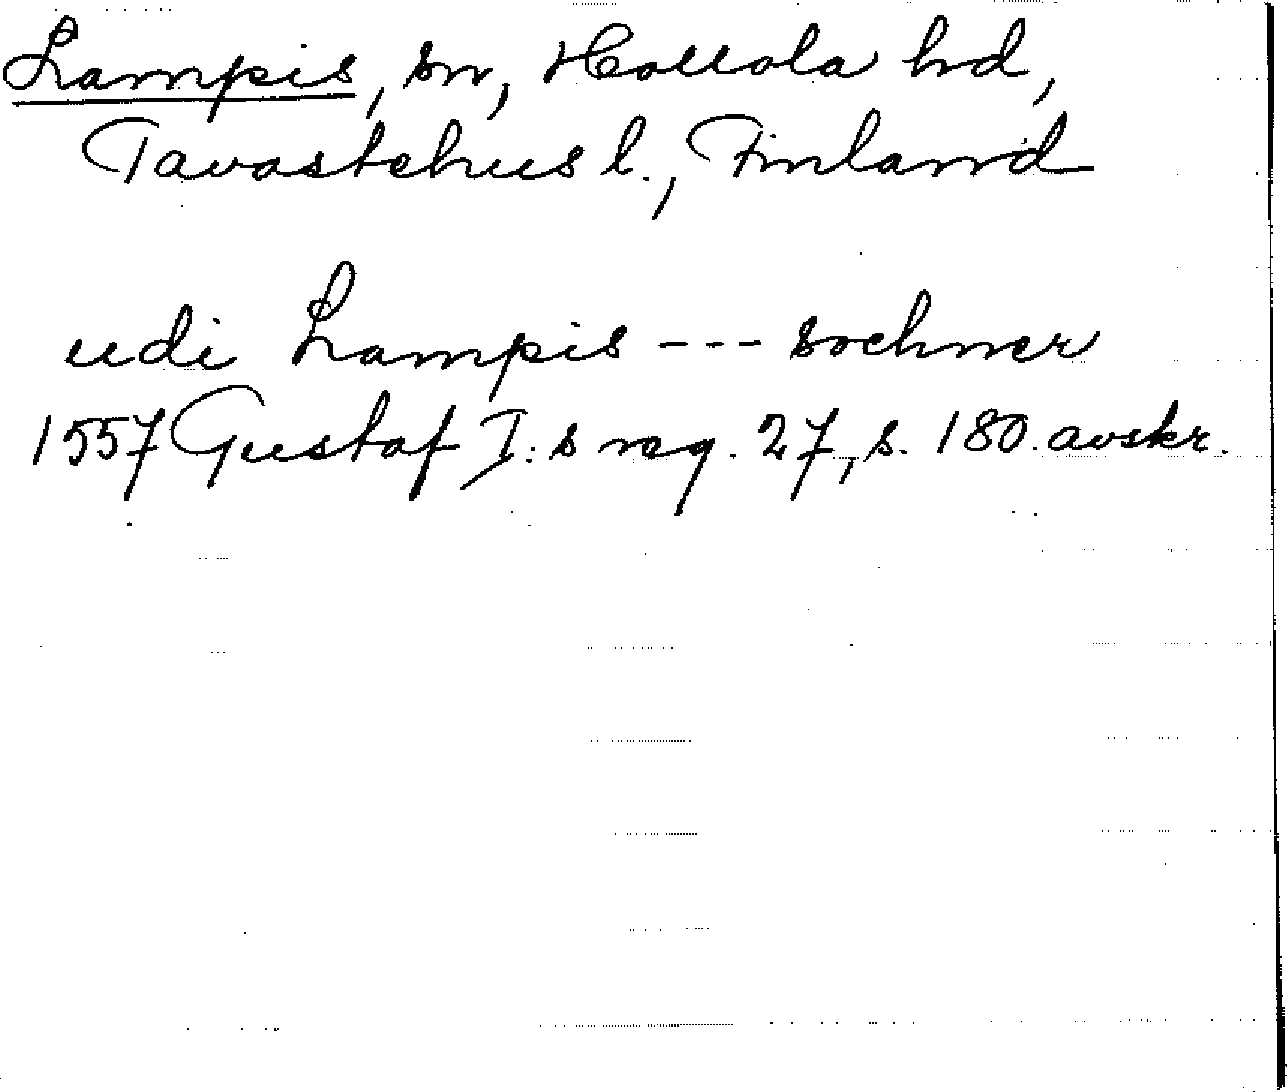 Lampis, sn, Hollola hd,
Tavastehus l., Finland
udi Lampis --- sochner
1557 Gustaf I:s reg. 27, s. 180. avskr.